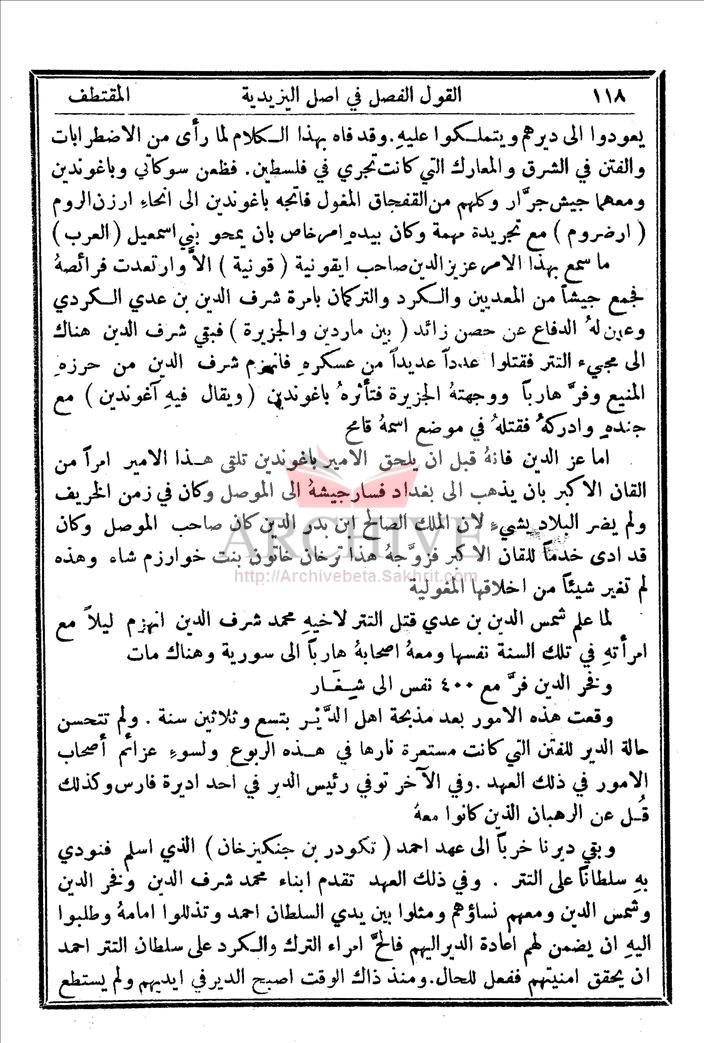 ١١٨ القول الفصل في اصل اليزيدية المقتطف
يعودوا الى ديرهم ويتملكوا عليهِ. وقد فاه بهذا الكلام لما رأى من الاضطرابات
والفتن في الشرق والمعارك التي كانت تجري في فلسطين. فظعن سوكاتي وباغوندين
ومعهما جيش جرَّار وكلهم من القفجاق المغول فاتجه باغوندين الى انحاءِ ارزن الروم
( ارضروم ) مع تجريدة مهمة وكان بيدهِ امر خاص بان يمحو بني اسمعيل ( العرب )
ما سمع بهذا الامر عزيز الدين صاحب ايقونية ( قونية ) الاَّ وارتعدت فرائصهُ
فجمع جيشاً من المعديين والكرد والتركمان بامرة شرف الدين بن عدي الكردي
وعين لهُ الدفاع عن حصن زائد ( بين ماردين والجزيرة ) فبقي شرف الدين هناك
الى مجيءِ التتر فقتلوا عدداً عديداً من عسكرهِ فانهزم شرف الدين من حرزهِ
المنيع وفرَّ هارباً ووجهتهُ الجزيرة فتأثرهُ باغوندين ( ويقال فيهِ آغوندين ) مع
جندهِ وادركهُ فقتلهُ في موضع اسمهُ قامح
اما عز الدين فانهُ قبل ان يلحق الامير باغوندين تلقى هذا الامير امراً من
القان الاكبر بان يذهب الى بغداد فسار جيشهُ الى الموصل وكان في زمن الخريف
ولم يضر البلاد بشيءٍ لان الملك الصالح ابن بدر الدين كان صاحب الموصل وكان
قد ادى خدماً للقان الاكبر فزوَّجهُ هذا ترخان خاتون بنت خوارزم شاء وهذه
لم تغير شيئاً من اخلاقها المغولية
ARCHIVE
http://Archivebeta.Sakhrit.com
لما علم شمس الدين بن عدي قتل التتر لاخيهِ محمد شرف الدين انهزم ليلاً مع
امرأتهِ في تلك السنة نفسها ومعهُ اصحابهُ هارباً الى سورية وهناك مات
وفخر الدين فرَّ مع ٤٠٠ نفس الى شيغار
وقعت هذه الامور بعد مذبحة اهل الدَّيْر بتسع وثلاثين سنة . ولم تتحسن
حالة الدير للفتن التي كانت مستعرة نارها في هذه الربوع ولسوءِ عزائم أصحاب
الامور في ذلك العهد . وفي الآخر توفي رئيس الدير في احد اديرة فارس وكذلك
قُل عن الرهبان الذين كانوا معهُ
وبقي ديرنا خرباً الى عهد احمد ( تكودر بن جنكيزخان ) الذي اسلم فنودي
بهِ سلطاناً على التتر . وفي ذلك العهد تقدم ابناء محمد شرف الدين وفخر الدين
وشمس الدين ومعهم نساؤهم ومثلوا بين يدي السلطان احمد وتذللوا امامهُ وطلبوا
اليهِ ان يضمن لهم اعادة الدير اليهم فالحَّ امراء الترك والكرد على سلطان التتر احمد
ان يحقق امنيتهم ففعل للحال. ومنذ ذاك الوقت اصبح الدير في ايديهم ولم يستطع